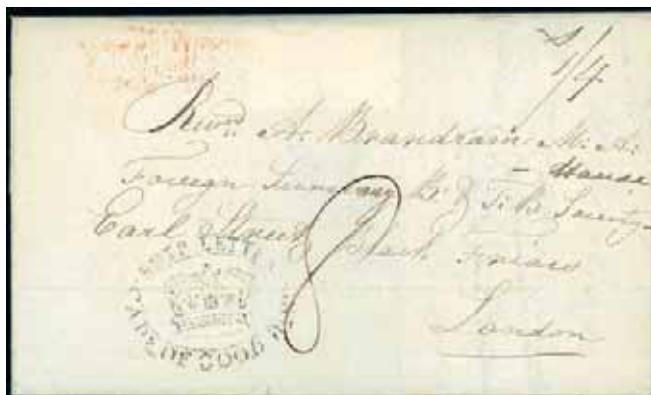 1/4
Revd. A. Brandram M. A.
- House
Foreign Secretary B. & F. B. Society
Earl Street Black Friars
London
8
SHIP LETTER
CAPE OF GOOD HOPE